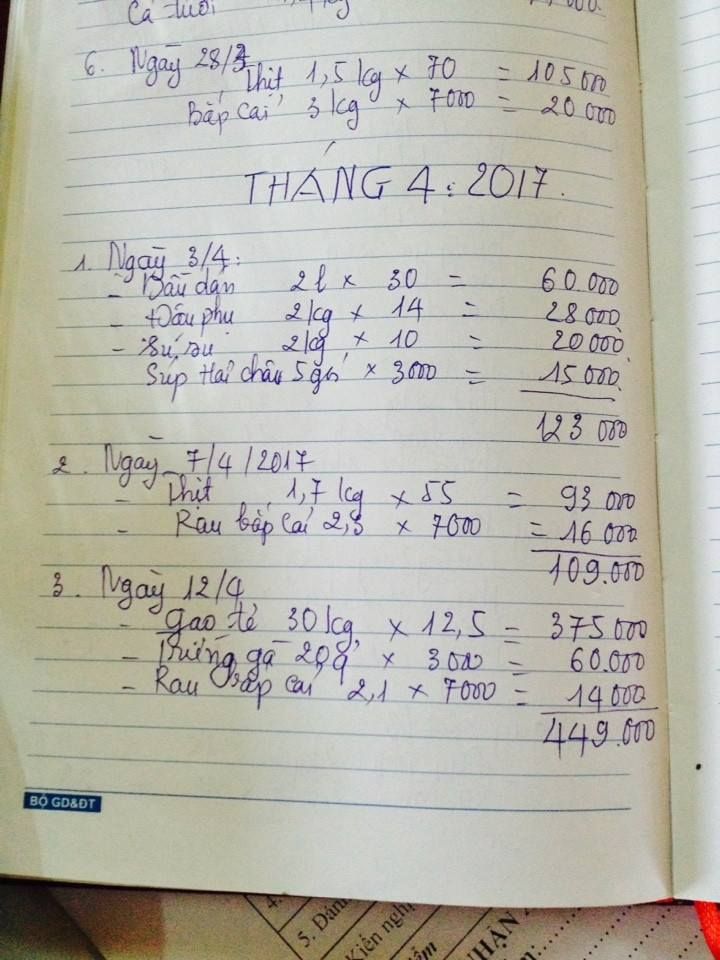 Cá tươi
6. Ngày 28/3
Thịt 1,5 kg × 70 = 105000
Bắp cải 3 kg × 7000 = 20 000
THÁNG 4: 2017.
1. Ngày 3/4:
- Dầu dán 2 l × 30 = 60.000
- Đậu phụ 2 kg × 14 = 28 000
- Su su 2 kg × 10 = 20000
Súp Hải châu 5 gói × 3000 = 15 000
123 000
2. Ngày 7/4/2017
- Thịt 1,7 kg × 55 = 93 000
- Rau bắp cải 2,3 × 7000 = 16 000
109.000
3. Ngày 12/4
- Gạo tẻ 30 kg × 12,5 = 375000
- Trứng gà 20q × 3000 = 60.000
- Rau bắp cải 2,1 × 7000 = 14 000
449.000
BỘ GD&ĐT
4.
5. Đánh
Kiến nghị
NHẬN